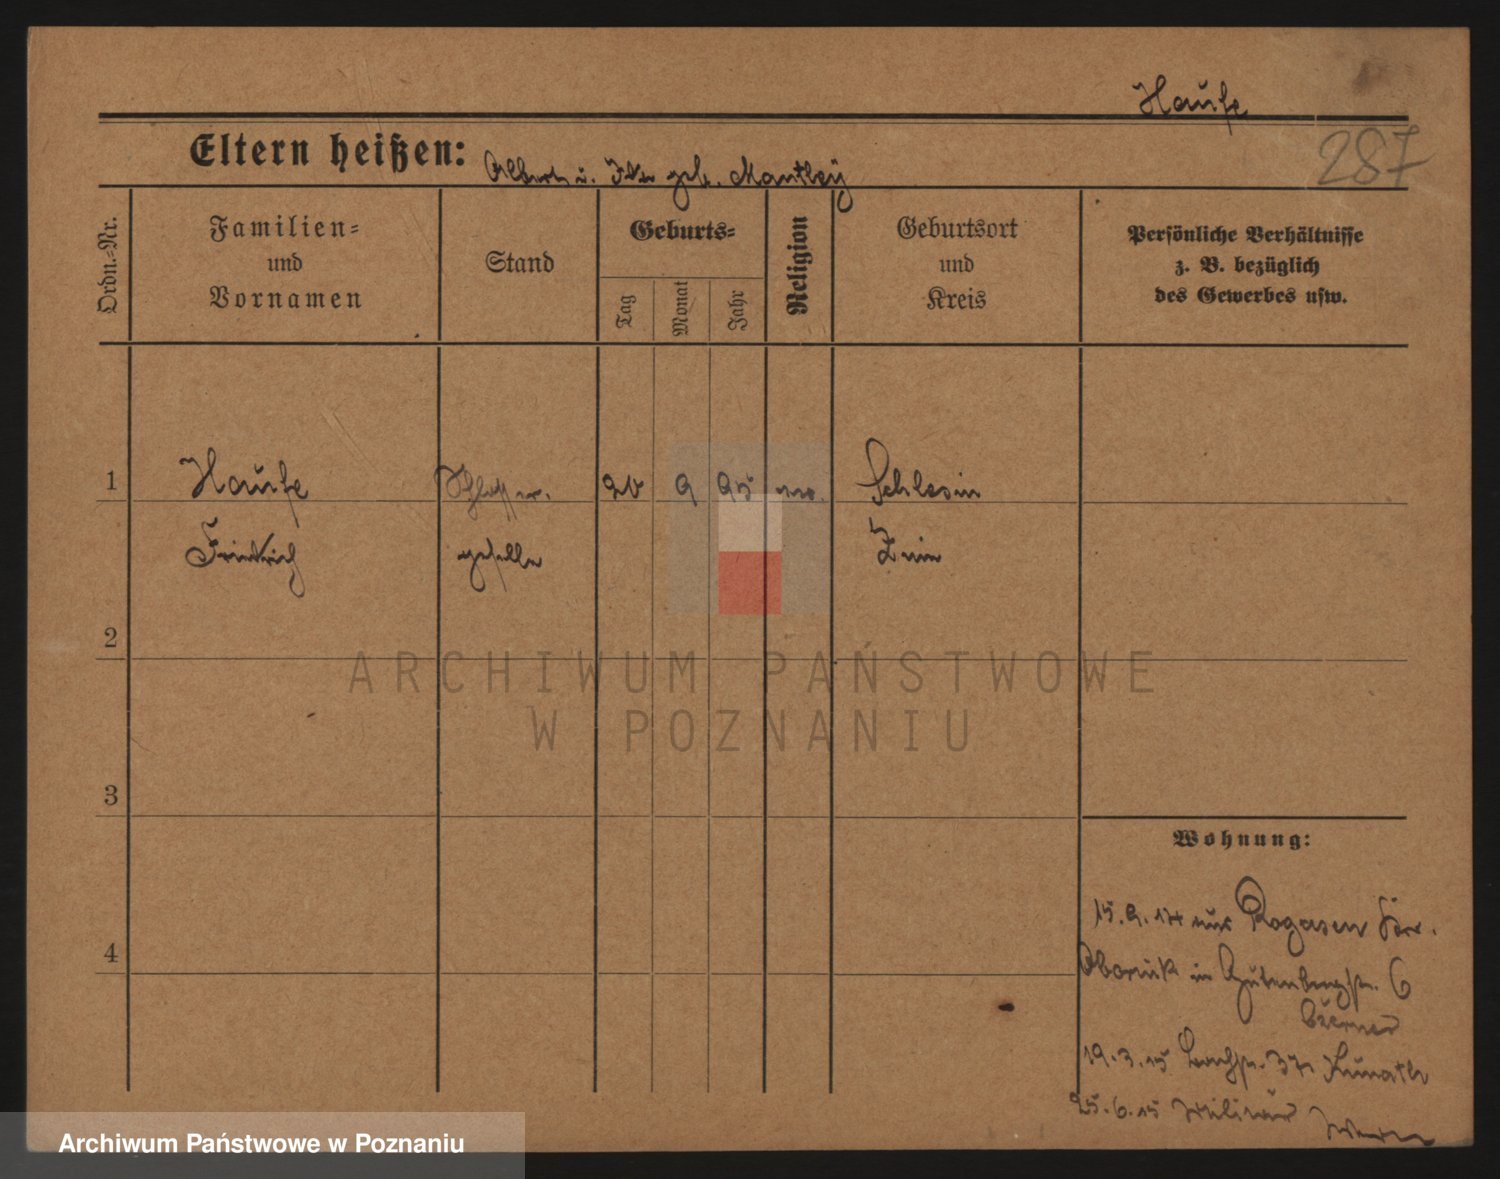 Haufe
287
Eltern heißen: Albert u. geb. Manthey
Ordn.-Nr.
Familien-
und
Vornamen
Stand
Geburts-
Tag
Monat
Jahr
Religion
Geburtsort
und
Kreis
Persönliche Verhältnisse
z. B. bezüglich
des Gewerbes usw.
1
Haufe
9 95
Schlesin
Friedrich
geselle
Znin
2
3
4
Wohnung:
15.9.14 aus Rogasen Kr.
Obornik in Gutenbergstr. 6
19.3.15
25.6.15 Militär
ARCHIWUM PAŃSTWOWE
W POZNANIU
Archiwum Państwowe w Poznaniu